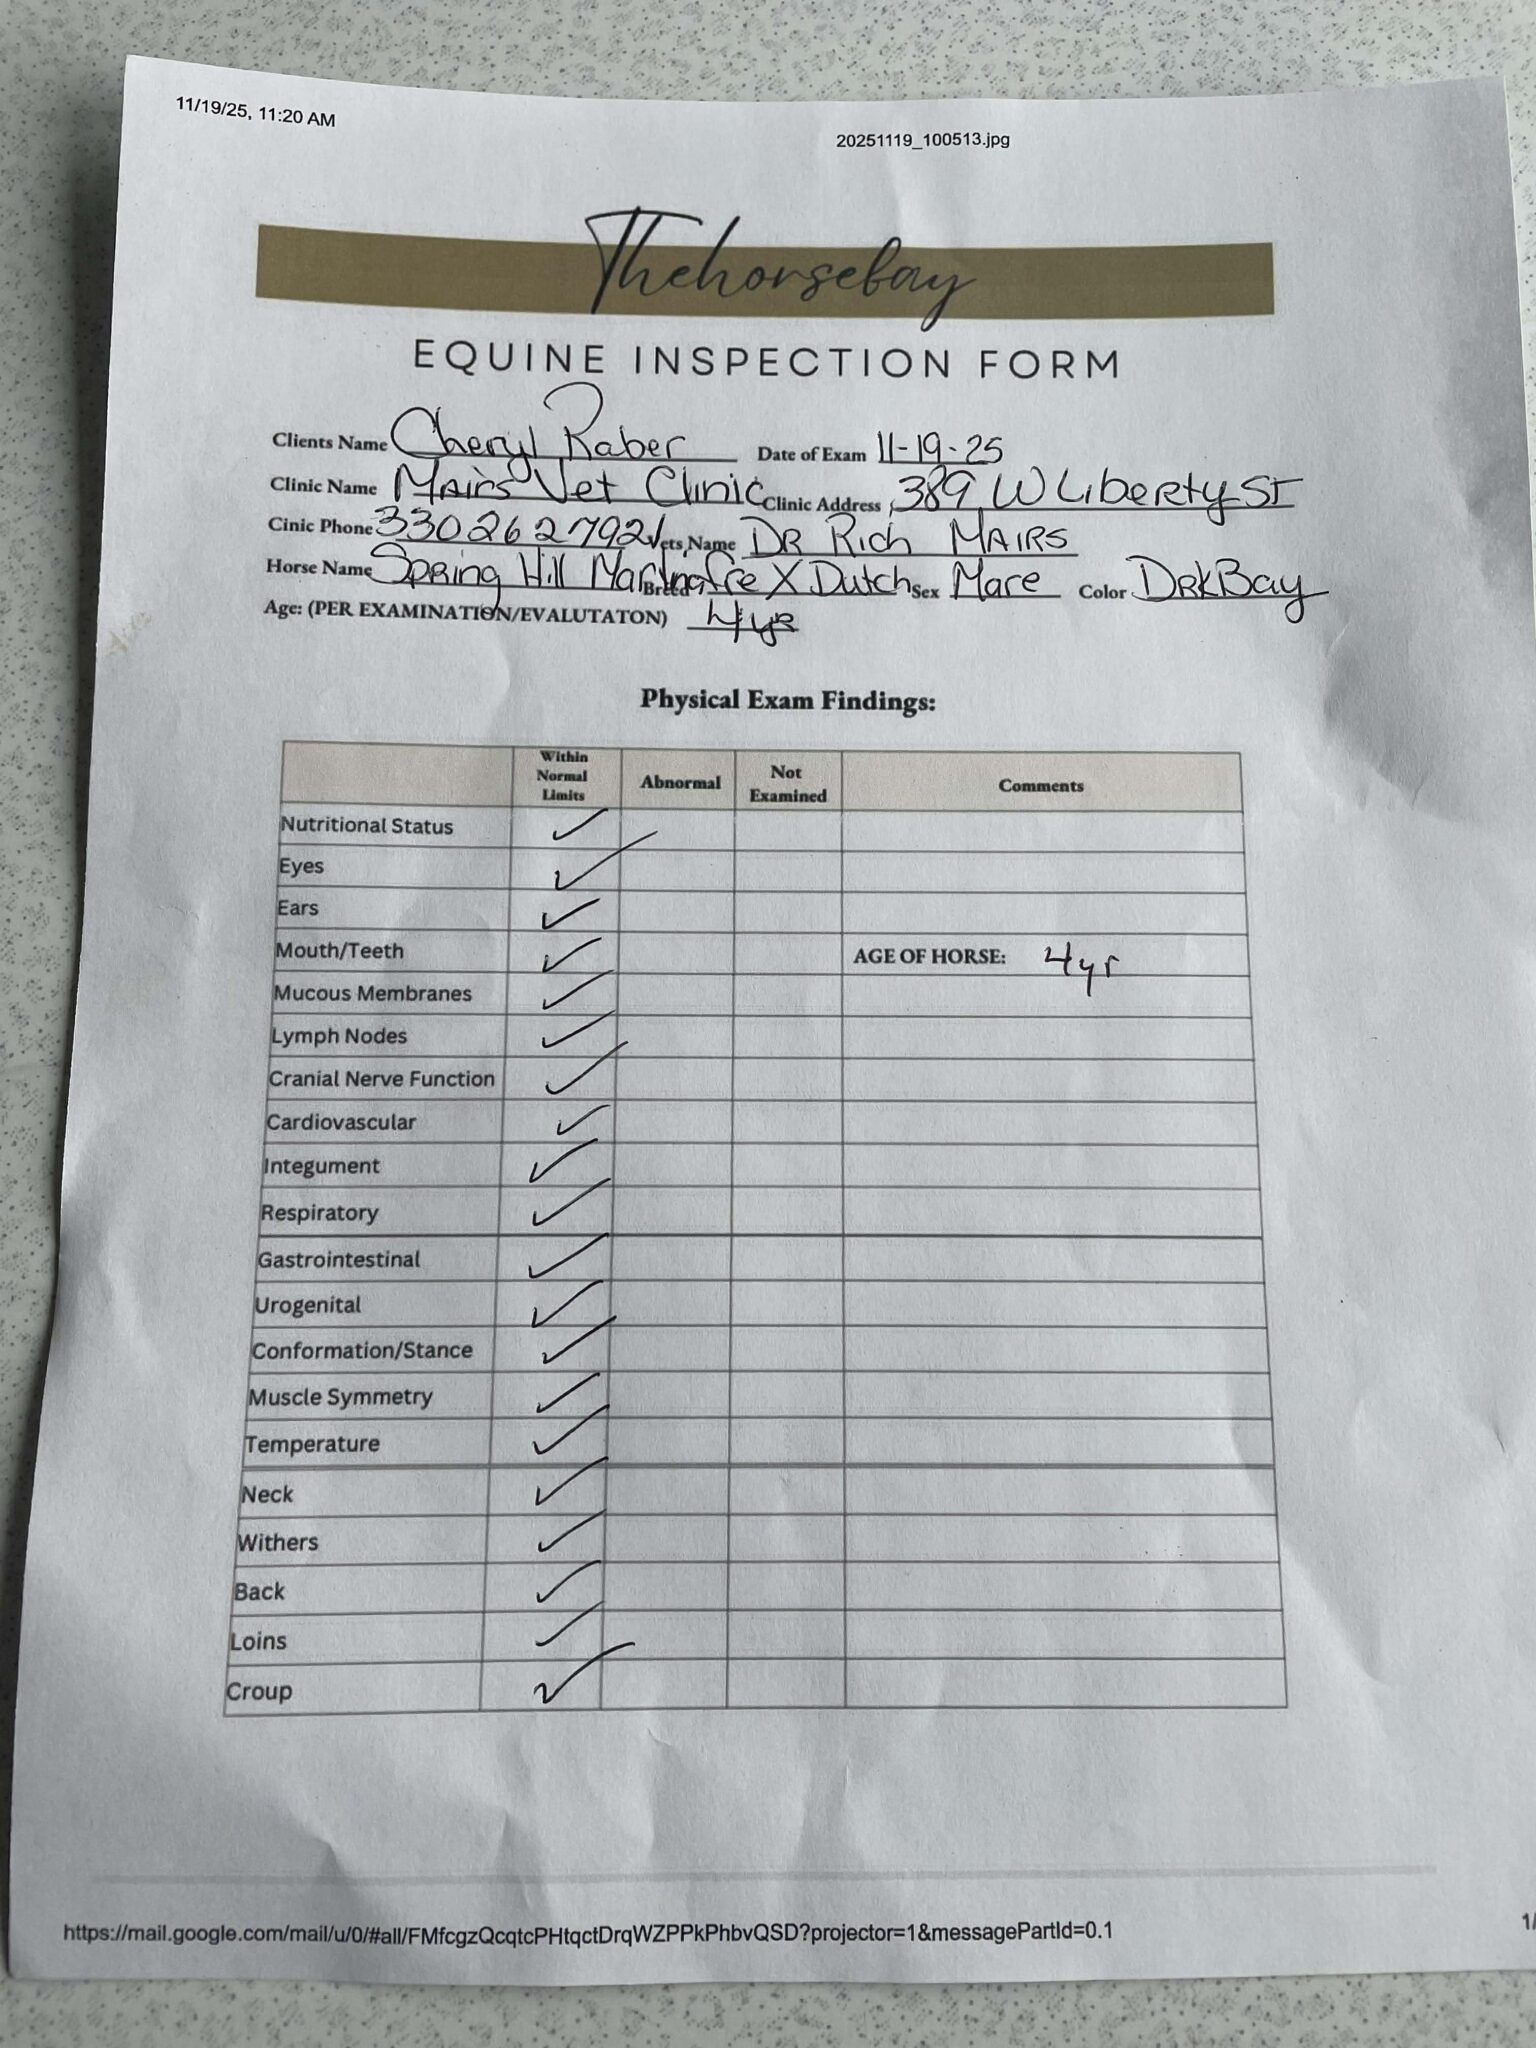 11/19/25, 11:20 AM
20251119_100513.jpg
Thehorsebay
EQUINE INSPECTION FORM
Clients Name Cheryl Raber Date of Exam 11-19-25
Clinic Name Mairs Vet Clinic Clinic Address 389 W Liberty St
Cinic Phone 330 262 7921 Vets Name DR Rich MAIRS
Horse Name Spring Hill Breed X Dutch Sex Mare Color DrkBay
Age: (PER EXAMINATION/EVALUTATON) 4yr
Physical Exam Findings:
Within Normal Limits Abnormal Not Examined Comments
Nutritional Status ✓
Eyes ✓
Ears ✓
Mouth/Teeth ✓ AGE OF HORSE: 4yr
Mucous Membranes ✓
Lymph Nodes ✓
Cranial Nerve Function ✓
Cardiovascular ✓
Integument ✓
Respiratory ✓
Gastrointestinal ✓
Urogenital ✓
Conformation/Stance ✓
Muscle Symmetry ✓
Temperature ✓
Neck ✓
Withers ✓
Back ✓
Loins ✓
Croup ✓
https://mail.google.com/mail/u/0/#all/FMfcgzQcqtcPHtqctDrqWZPPkPhbvQSD?projector=1&messagePartId=0.1
1/